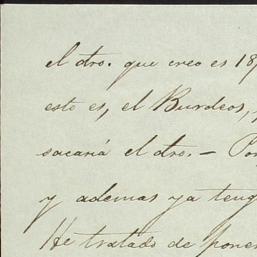 el dro. que creo es 18
esto es, el Burdeos,
sacaria el dro. — Por
y ademas ya teng
He tratado de poner